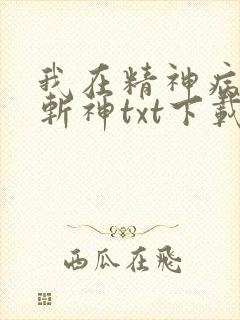 我在精神病
斩神txt下载
西瓜在飛